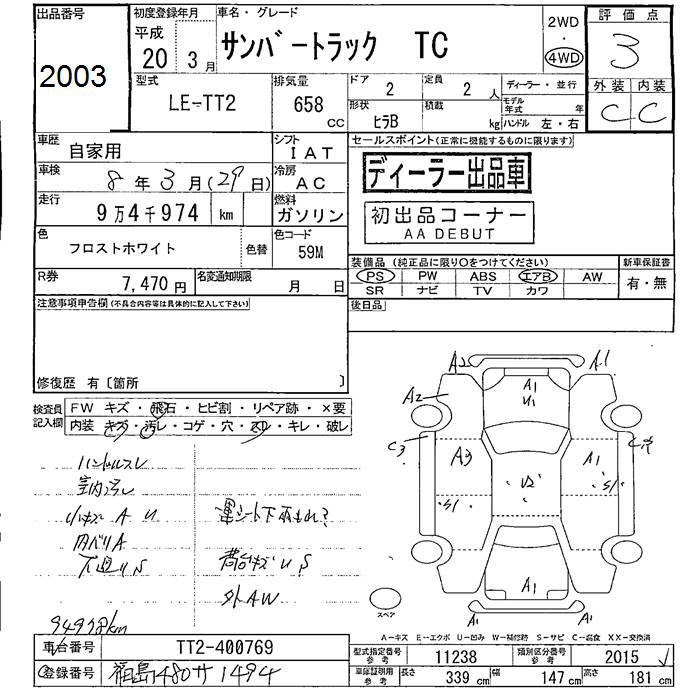 出品番号
2003
初度登録年月
平成
20 3月
車名・グレード
サンバートラック TC
2WD
・
4WD
評価点
3
外装 内装
C C
型式
LE-TT2
排気量
658 cc
ドア
2
定員
2 人
形状
ヒラB
積載
kg
ディーラー・並行
モデル年式 年
ハンドル 左・右
車歴
自家用
シフト
IAT
車検
8年3月(29日)
冷房
AC
走行
9万4千974 km
燃料
ガソリン
色
フロストホワイト
色替
色コード
59M
R券
7,470円
名変通知期限
月 日
セールスポイント(正常に機能するものに限ります)
ディーラー出品車
初出品コーナー
AA DEBUT
装備品(純正品に限り○をつけてください)
PS PW ABS エアB AW
SR ナビ TV カワ
新車保証書
有・無
後日品
注意事項申告欄(不具合内容等は具体的に記入して下さい)
修復歴 有〔箇所 〕
検査員記入欄
FW キズ・飛石・ヒビ割・リペア跡・×要
内装 キズ・汚レ・コゲ・穴・スレ・キレ・破レ
ハンドルスレ
室内汚レ
小キズ A U
内ベリA
下廻りS
運シート下雨もれ?
荷台キズ U S
外AW
94978km
A2 A1
A1
U1
A2
C3
A3 A1
U2
S1 S1
A1
A1 A1
スペア
A-キズ E-エクボ U-凹み W-補修跡 S-サビ C-腐食 XX-交換済
車台番号
TT2-400769
登録番号
福島480サ1494
型式指定番号
参考
11238
類別区分番号
参考
2015
車庫証明用
参考
長さ 339 cm
幅 147 cm
高さ 181 cm